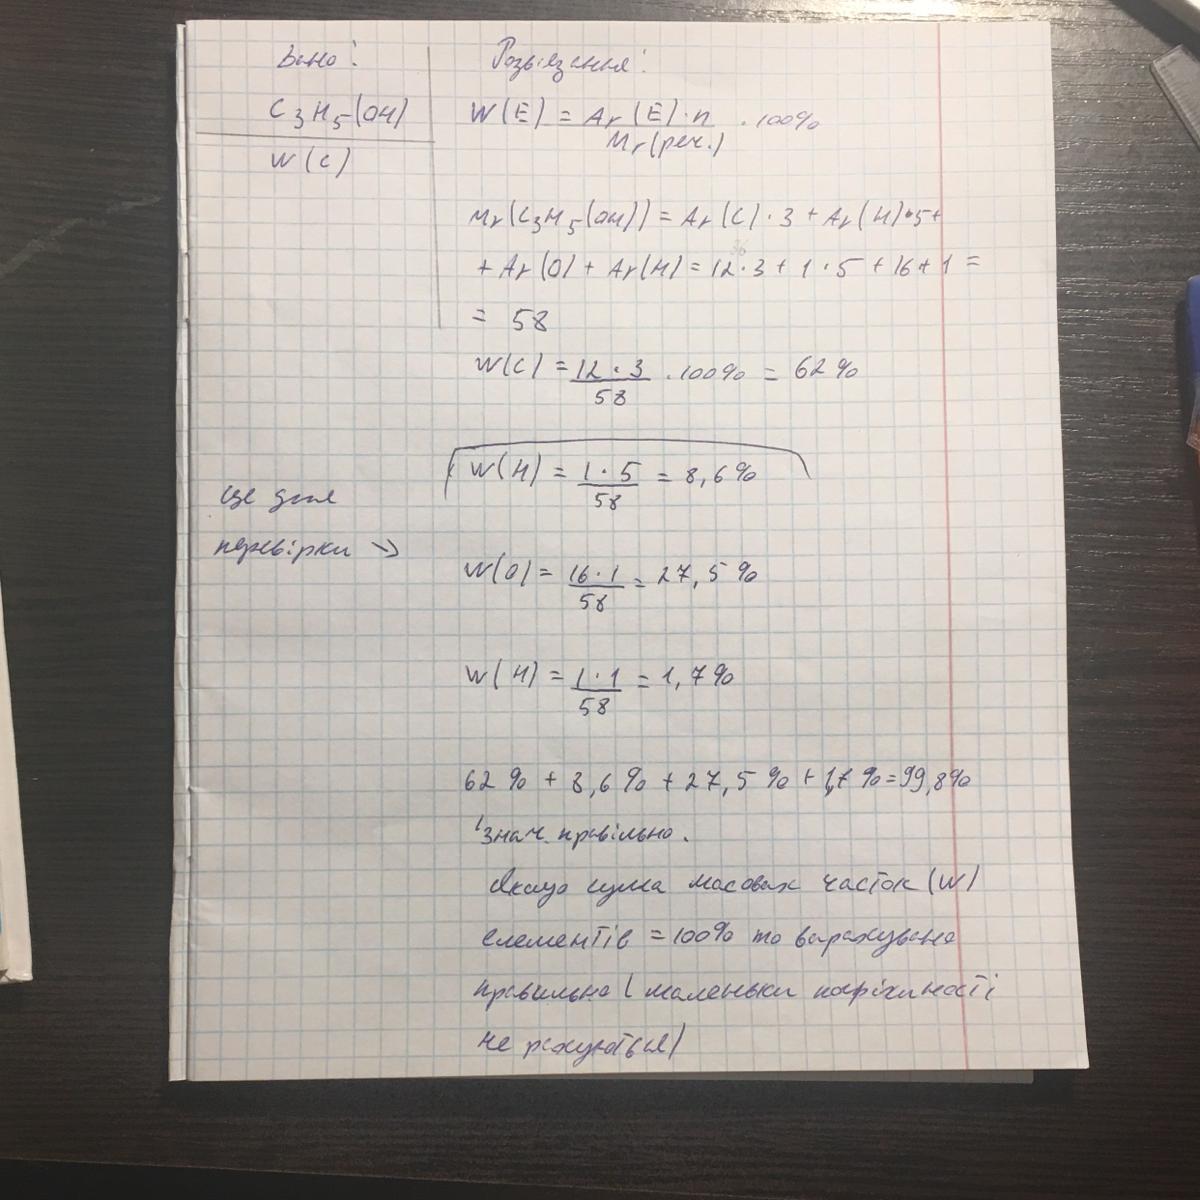 Дано:
C3H5(OH)
W(C)
Розвʼязання:
W(E) = Ar(E)·n / Mr(реч.) · 100%
Mr(C3H5(OH)) = Ar(C)·3 + Ar(H)·5+
+ Ar(O) + Ar(H) = 12·3 + 1·5 + 16 + 1 =
= 58
W(C) = 12·3 / 58 · 100% = 62%
W(H) = 1·5 / 58 = 8,6%
це для
перевірки →
W(O) = 16·1 / 58 = 27,5%
W(H) = 1·1 / 58 = 1,7%
62% + 8,6% + 27,5% + 1,7% = 99,8%
знач. правільно.
Якщо сума масових часток (W)
елементів = 100% то вирахувано
правильно ( маленьки погрішності
не рахуються)